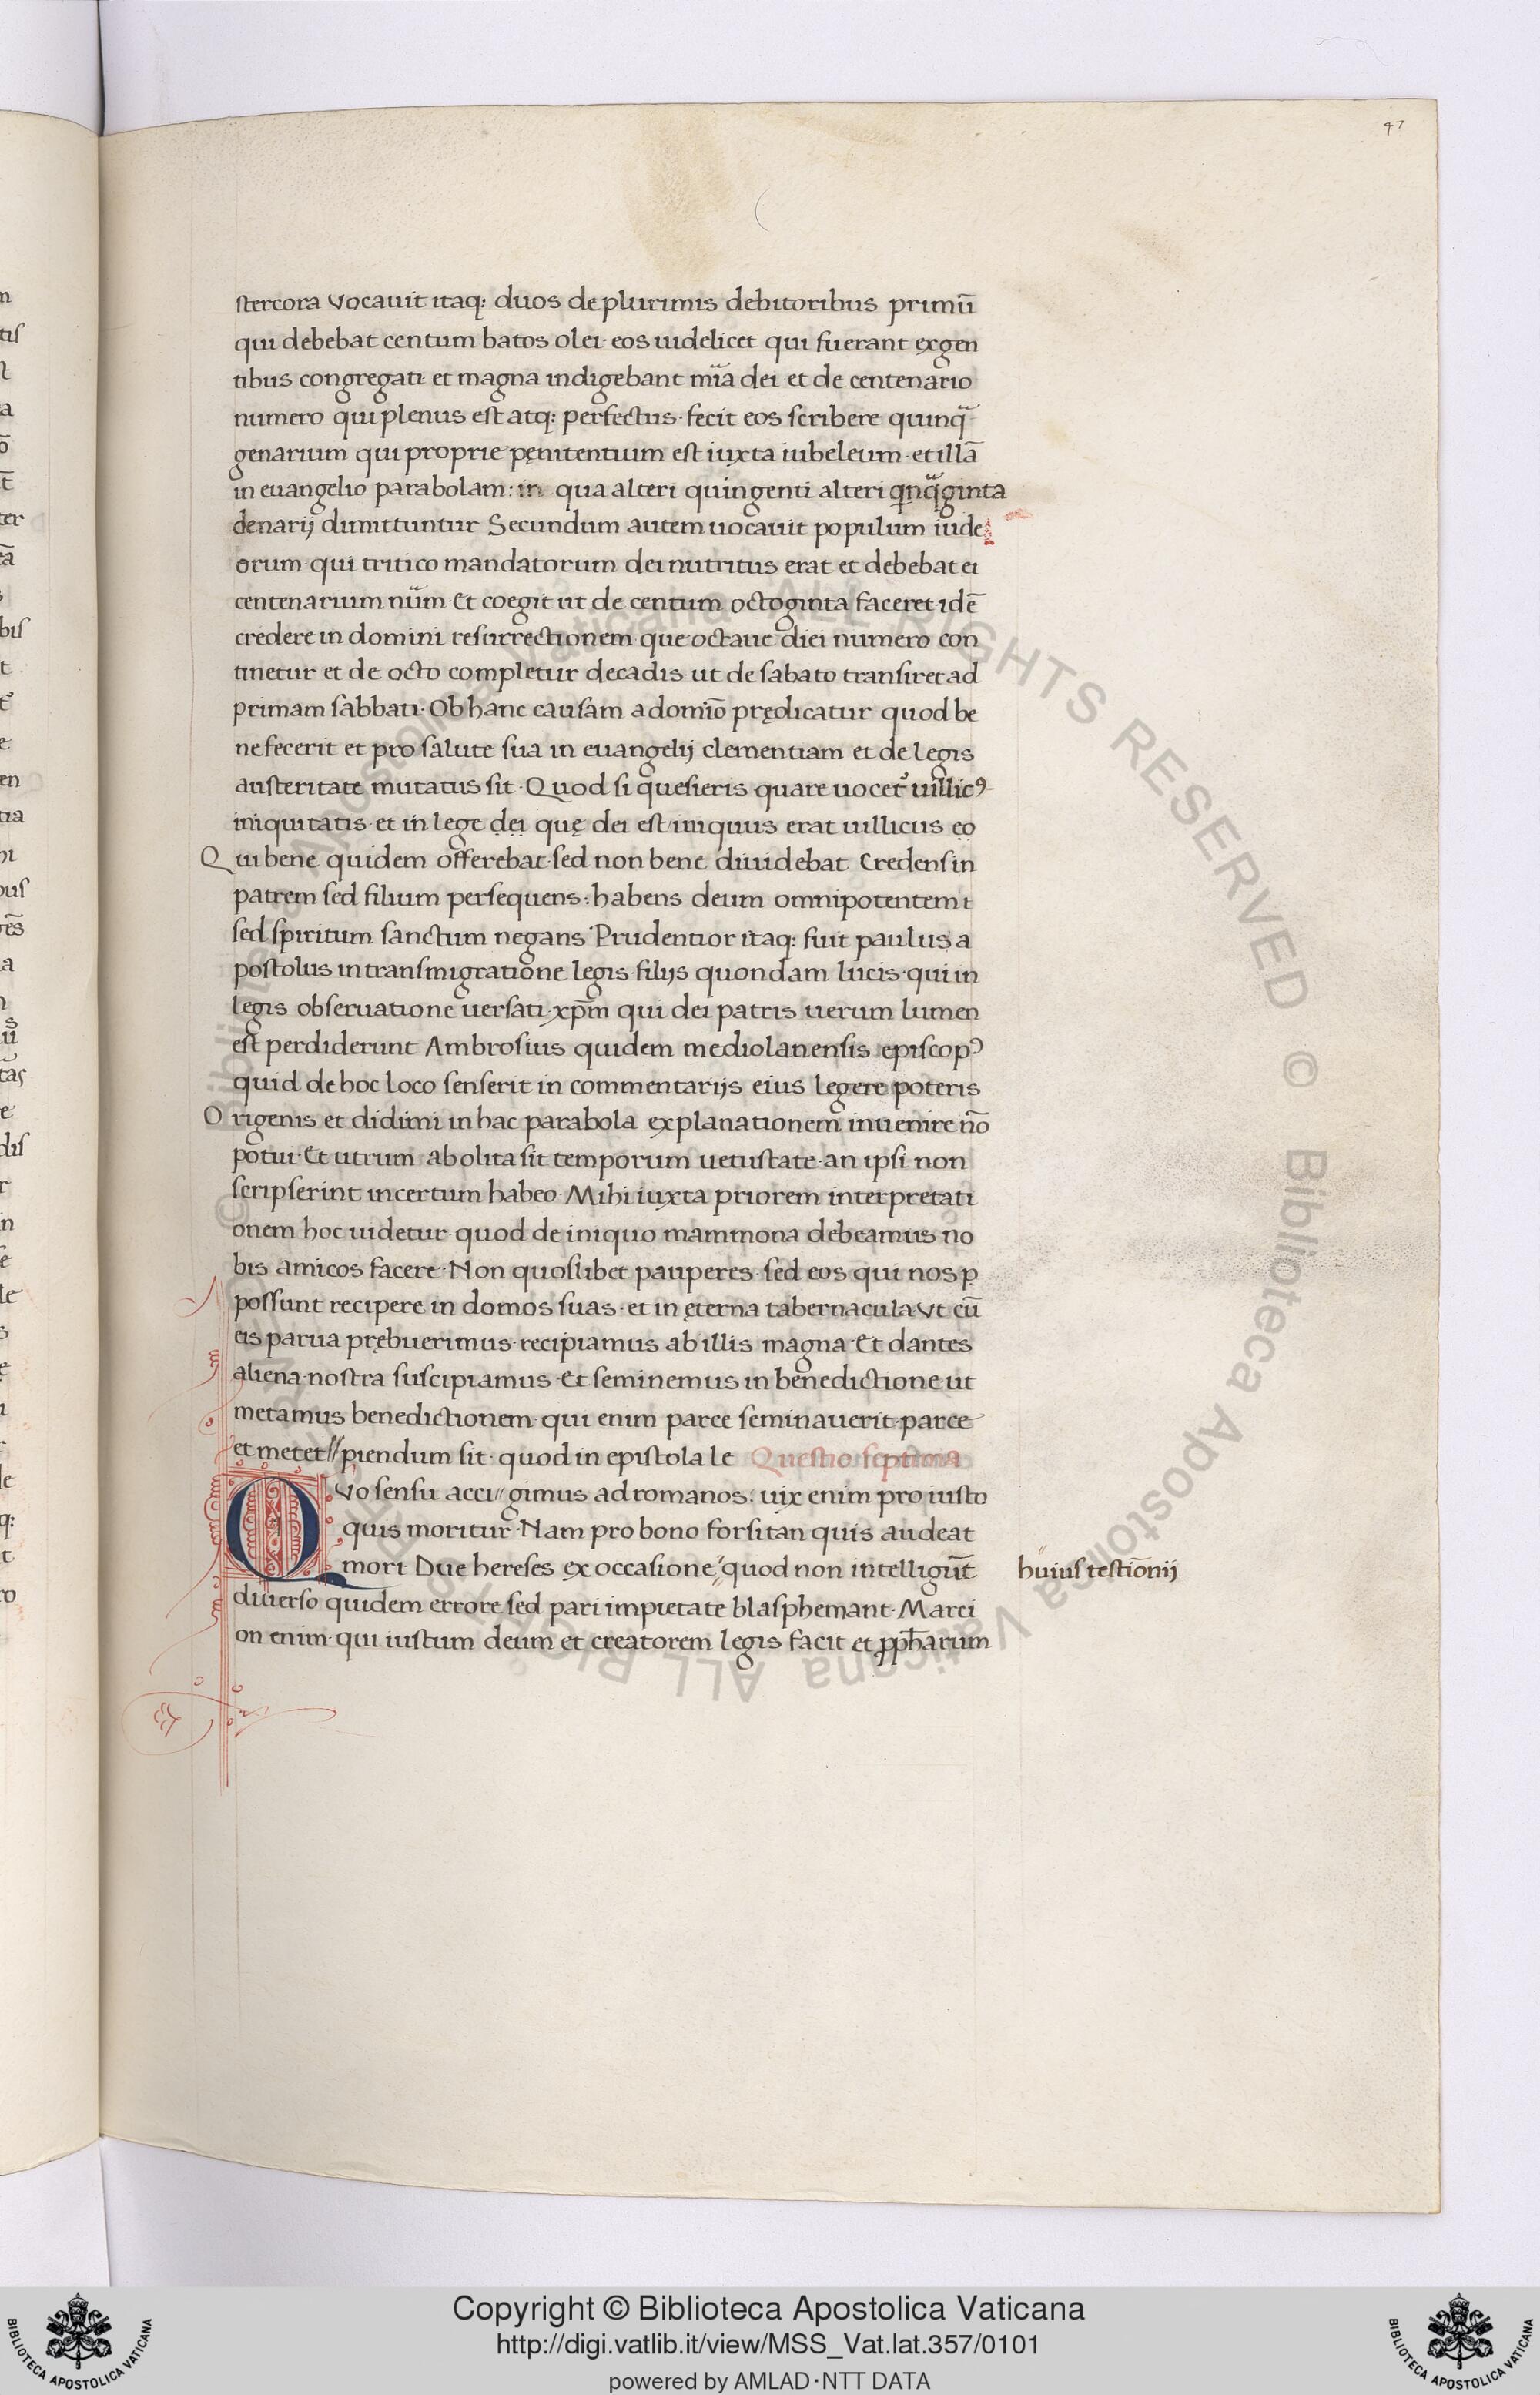 47
stercora vocauit itaq: duos de plurimis debitoribus primū
qui debebat centum batos olei· eos uidelicet qui fuerant ex gen
tibus congregati· et magna indigebant mīa dei· et de centenario
numero qui plenus est atq: perfectus· fecit eos scribere quinq̄
genarium qui proprie pęnitentium est iuxta iubeleum· et illā
in euangelio parabolam: in qua alteri quingenti alteri qnq̄ginta
denarij dimittuntur Secundum autem uocauit populum iude
orum qui tritico mandatorum dei nutritus erat et debebat ei
centenarium nūm· Et coegit ut de centum octoginta faceret· idē
credere in domini resurrectionem que octaue diei numero con
tinetur et de octo completur decadis ut de sabato transiret ad
primam sabbati· Ob hanc causam a domīo prędicatur quod be
ne fecerit et pro salute sua in euangelij clementiam et de legis
austeritate mutatus sit· Quod si quesieris quare uocet᷑ uillicꝰ
iniquitatis· et in lege dei quę dei est iniquus erat uillicus eo
Qui bene quidem offerebat· sed non bene diuidebat Credens in
patrem sed filium persequens: habens deum omnipotentem
sed spiritum sanctum negans Prudentior itaq: fuit paulus a
postolus in transmigratione legis filijs quondam lucis· qui in
legis obseruatione uersati· xp̄m qui dei patris uerum lumen
est perdiderunt Ambrosius quidem mediolanensis episcopꝰ
quid de hoc loco senserit in commentarijs eius legere poteris
Origenis et didimi in hac parabola explanationem inuenire nō
potui· Et utrum abolita sit temporum uetustate· an ipsi non
scripserint incertum habeo· Mihi iuxta priorem interpretati
onem hoc uidetur· quod de iniquo mammona debeamus no
bis amicos facere· Non quoslibet pauperes· sed eos qui nos p
possunt recipere in domos suas· et in ęterna tabernacula· Vt cū
eis parua prębuerimus· recipiamus ab illis magna· Et dantes
aliena· nostra suscipiamus· Et seminemus in benedictione ut
metamus benedictionem· qui enim parce seminauerit· parce
et metet// piendum sit· quod in epistola le Questio septima
QVo sensu acci// gimus ad romanos: uix enim pro iusto
quis moritur· Nam pro bono forsitan quis audeat
mori· Due hereses ex occasione// quod non intelligūt
huius testiōnij
diuerso quidem errore sed pari impietate blasphemant· Marci
on enim· qui iustum deum et creatorem legis facit et ꝓph̄arum
© Biblioteca Apostolica Vaticana ALL RIGHTS RESERVED © Biblioteca Apostolica Vaticana ALL RIGHTS RESERVED
Copyright © Biblioteca Apostolica Vaticana
http://digi.vatlib.it/view/MSS_Vat.lat.357/0101
powered by AMLAD·NTT DATA
BIBLIOTECA APOSTOLICA VATICANA
BIBLIOTECA APOSTOLICA VATICANA